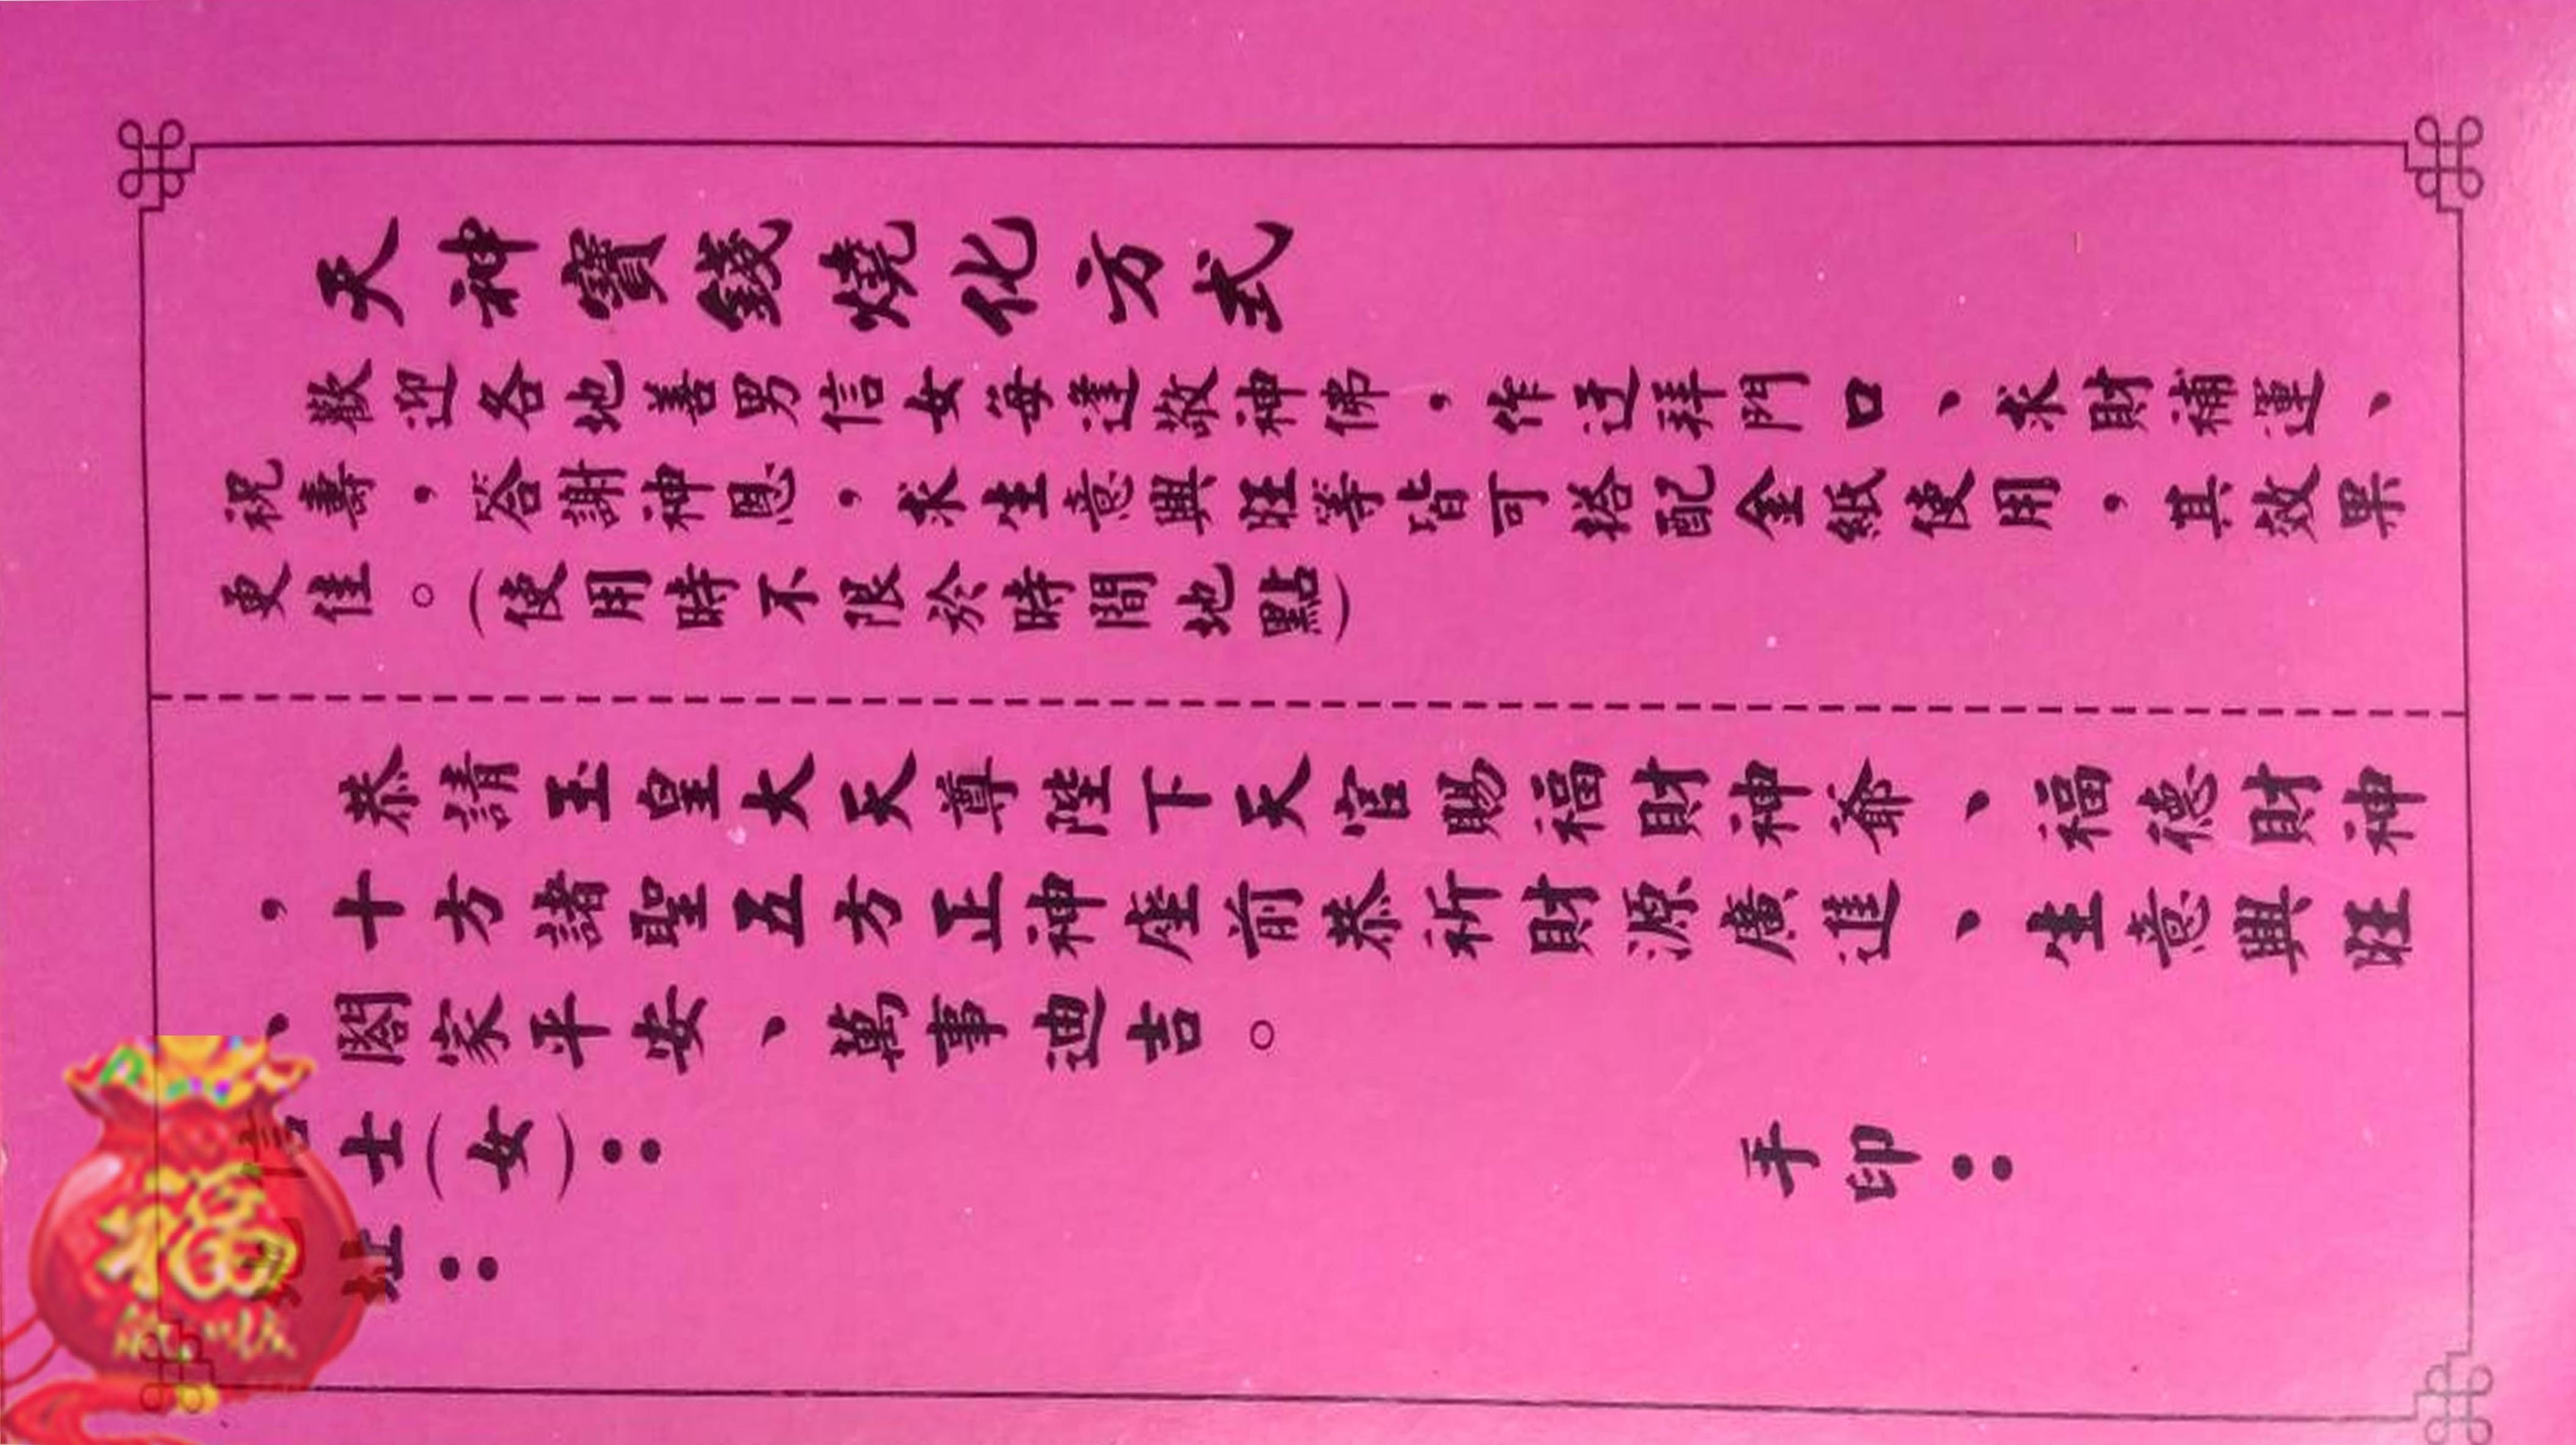 天神寶錢燒化方式
歡迎各地善男信女每逢敬神佛，作迓拜門口、求財補運、
祝壽，答謝神恩，求生意興旺等皆可搭配金紙使用，其效果
更佳。(使用時不限於時間地點)
恭請玉皇大天尊陛下天官賜福財神爺、福德財神
，十方諸聖五方正神座前恭祈財源廣進、生意興旺
、閤家平安、萬事迪吉。
信士(女)： 手印：
址：
福